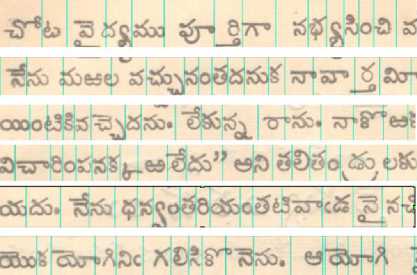 చోట వైద్యము పూర్తిగా నభ్యసించి వ
నేను మఱల వచ్చునంతదనుక నావార్త మీ
యింటికివచ్చెదను. లేకున్న రాను. నాకొఱ
విచారింపనక్కఱలేదు" అని తలితండ్రులకు
యదు. నేను ధన్వంతరియంతటివాఁడ నైన
యొక యోగినిఁ గలిసికొనెను. ఆ యోగి